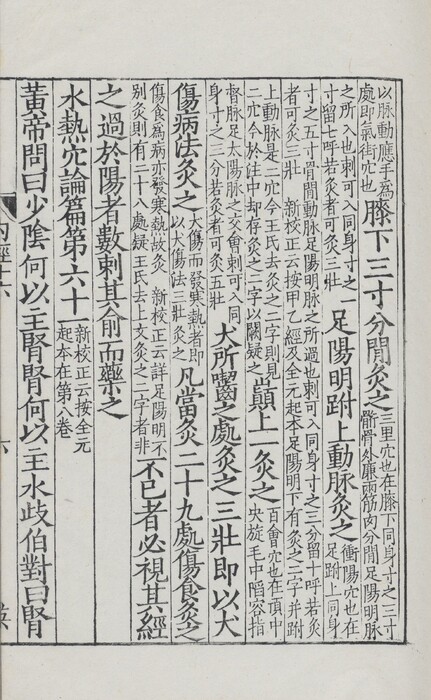 以脉動應手為
處即氣街穴也
膝下三寸分間灸之
三里穴也在膝下同身寸之三寸
䯒骨外廉兩筋肉分間足陽明脉
之所入也刺可入同身寸之一
寸留七呼若灸者可灸三壯
足陽明跗上動脉灸之
衝陽穴也在
足跗上同身
寸之五寸骨間動脉足陽明脉之所過也刺可入同身寸之三分留十呼若灸
者可灸三壯　新校正云按甲乙經及全元起本足陽明下有灸之二字并跗
上動脉是二穴今王氏去灸之二字則見
二穴今於注中却存灸之二字以闕疑之
巔上一灸之
百會穴也在頂中
央旋毛中陷容指
督脉足太陽脉之交會刺可入同
身寸之三分若灸者可灸五壯
犬所齧之處灸之三壯即以犬
傷病法灸之
犬傷而發寒熱者即
以犬傷法三壯灸之
凡當灸二十九處傷食灸之
傷食為病亦發寒熱故灸　新校正云詳足陽明不
別灸則有二十八處疑王氏去上文灸之二字者非
不已者必視其經
之過於陽者數刺其俞而藥之
水熱穴論篇第六十一
新校正云按全元
起本在第八卷
黃帝問曰少陰何以主腎腎何以主水歧伯對曰腎